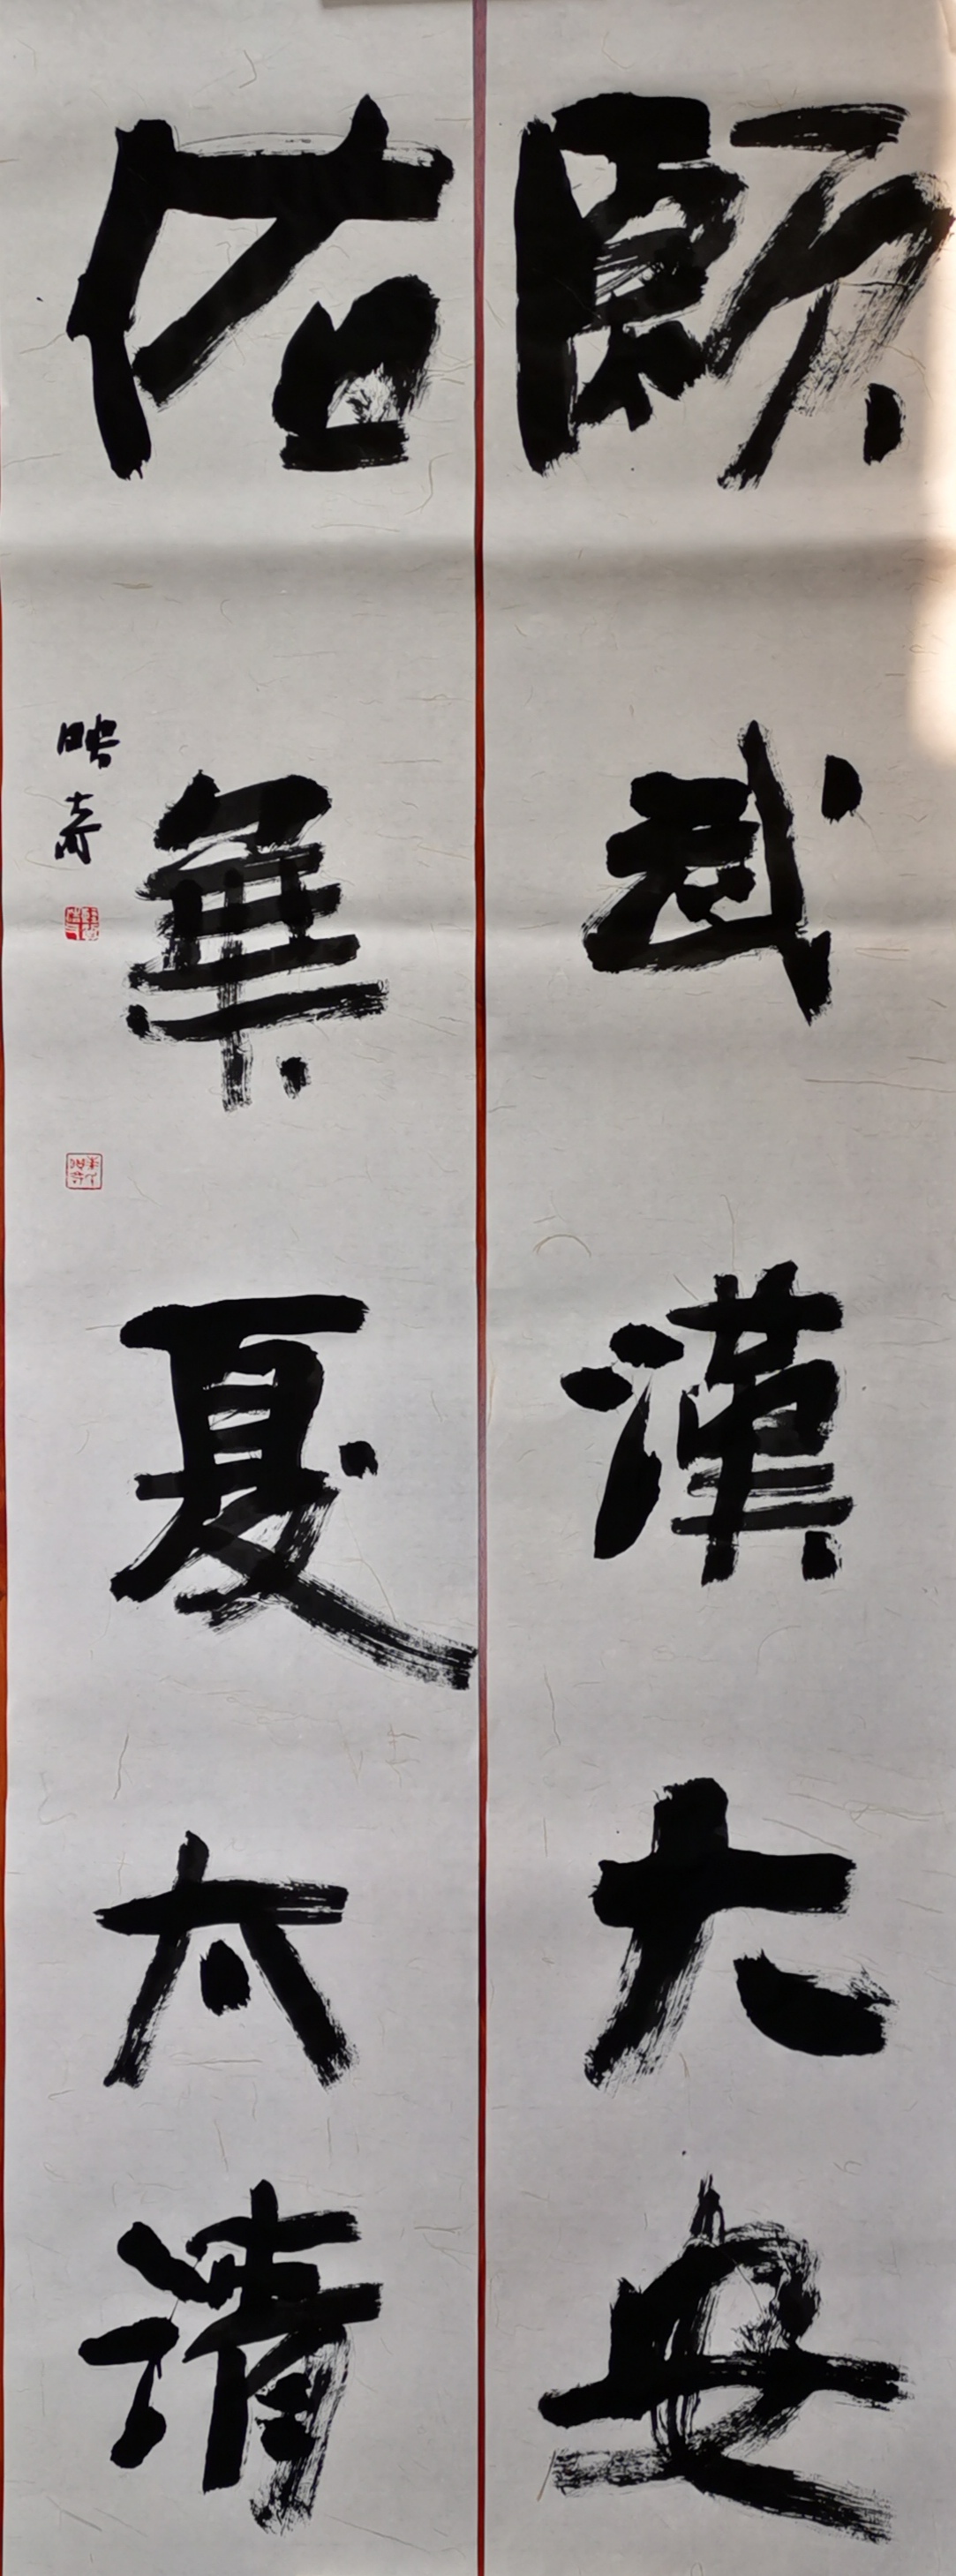 願武漢大安
佑華夏太清
映寿